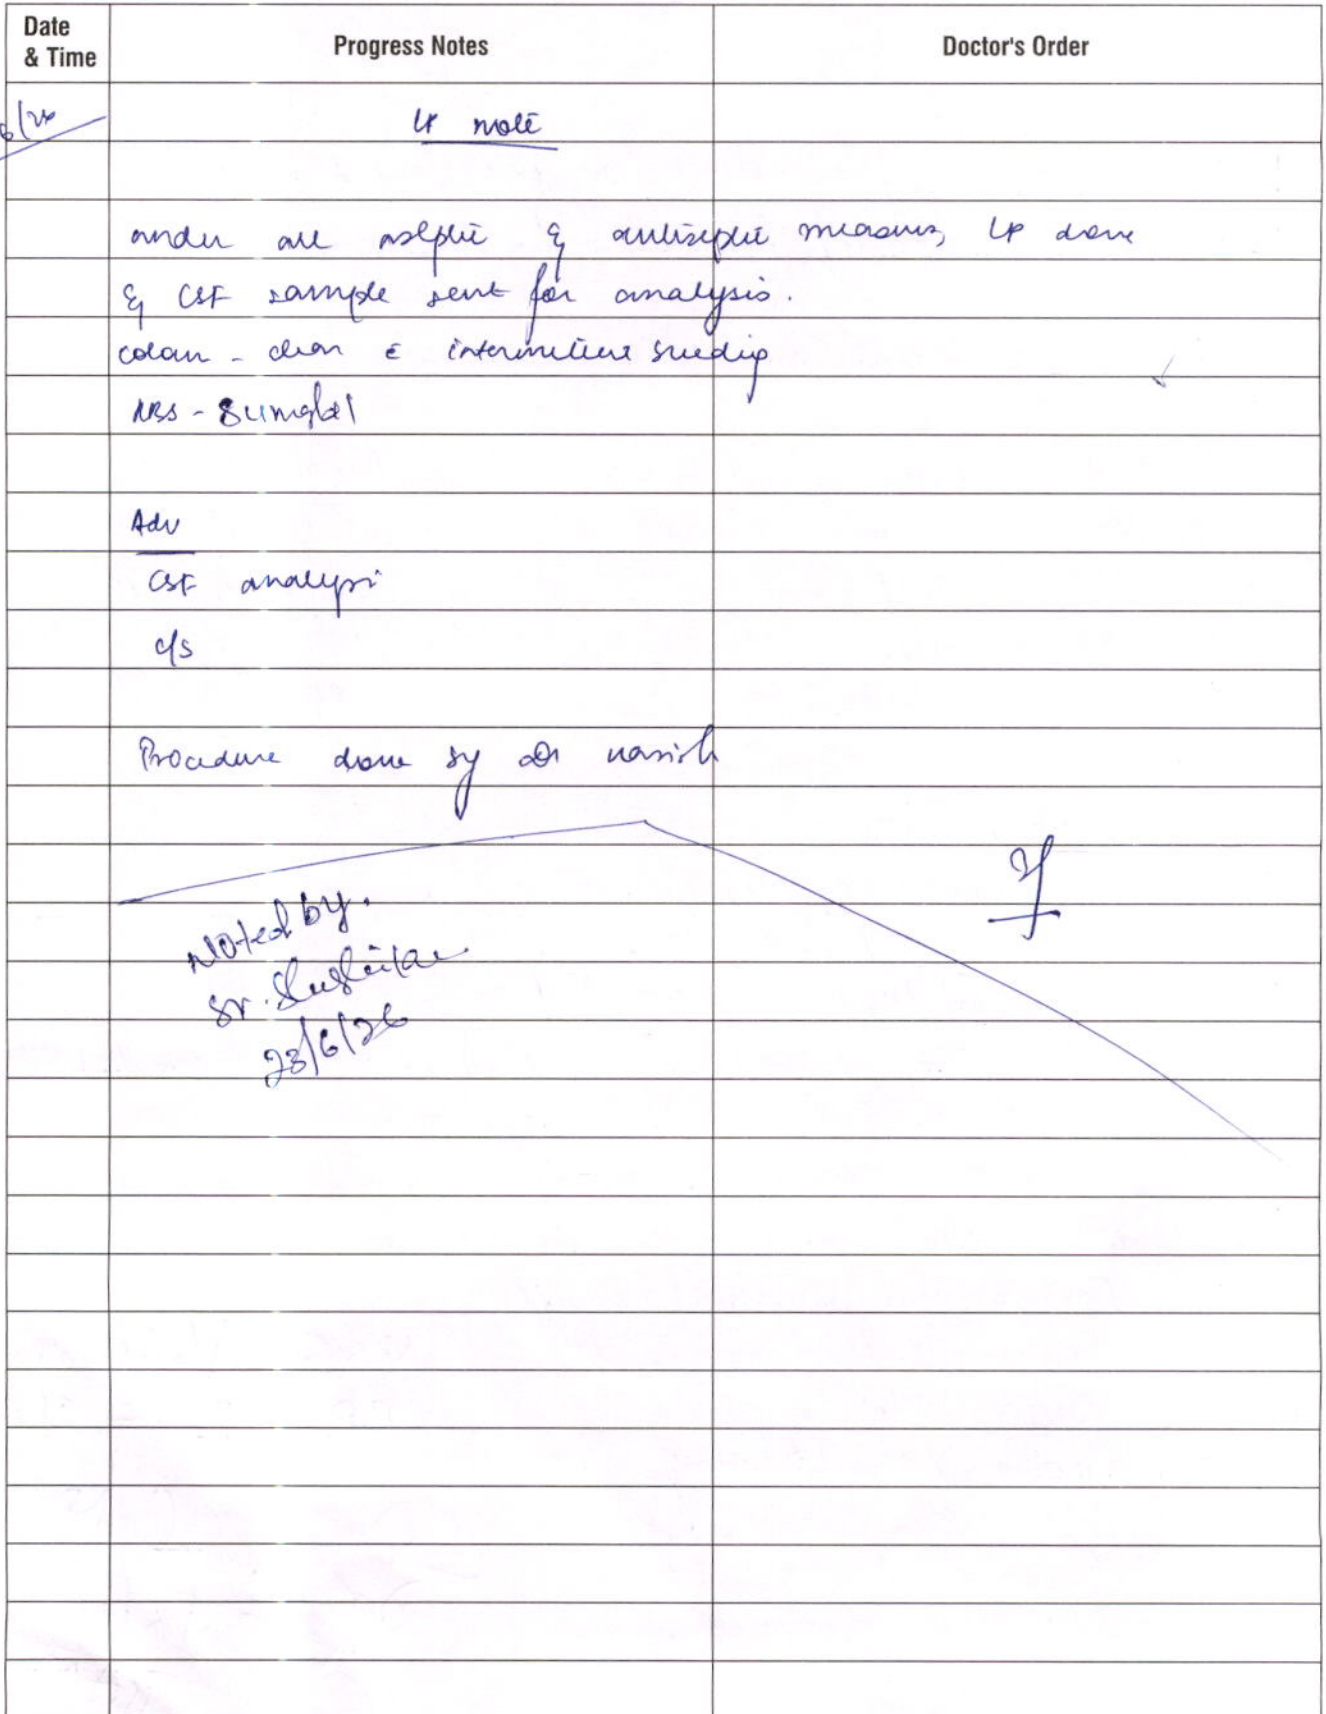 Date & Time
Progress Notes
Doctor's Order
6/26
LP note
under all aseptic & antiseptic measures, LP done
& CSF sample sent for analysis.
colour - clear c̄ intermittent bleeding
RBS -
Adv
CSF analysis
c/s
Procedure done by Dr
Noted by.
Sr.
23/6/26